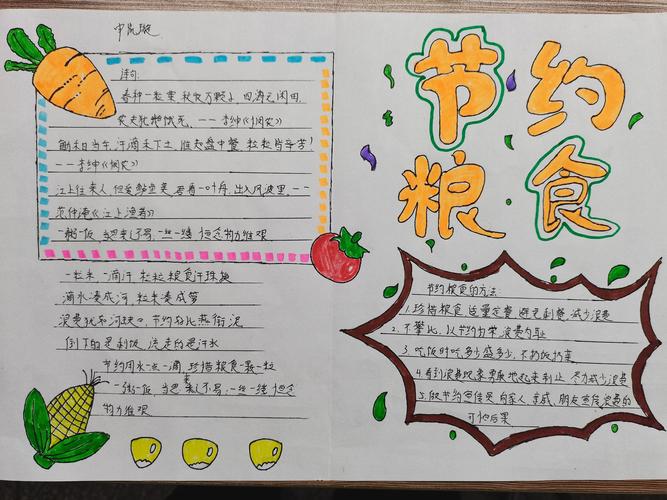 诗句:
春种一粒粟,秋收万颗子,四海无闲田,
农夫犹饿死。——李绅《悯农》
锄禾日当午,汗滴禾下土,谁知盘中餐,粒粒皆辛苦!
——李绅《悯农》
江上往来人,但爱鲈鱼美,君看一叶舟,出入风波里,——
范仲淹《江上渔者》
一粥一饭,当思来之不易,一丝一缕,恒念物力维艰
一粒米 一滴汗,粒粒粮食汗珠换
滴水凑成河,粒米凑成箩
浪费犹如河缺口,节约好比燕衔泥
倒下的是剩饭 流走的是汗水
节约用水一点一滴,珍惜粮食一颗一粒
一粥一饭,当思来之不易;一丝一缕,恒念
物力维艰
节约
粮食
节约粮食的方法:
1.珍惜粮食,适量定餐,避免剩餐,减少浪费
2.不攀比,以节约为荣,浪费为耻
3.吃饭时吃多少盛多少,不扔饭扔菜
4.看到浪费现象勇敢地起来制止,尽力减少浪费
5.做节约宣传员,向家人,亲戚,朋友宣传浪费的
可怕后果